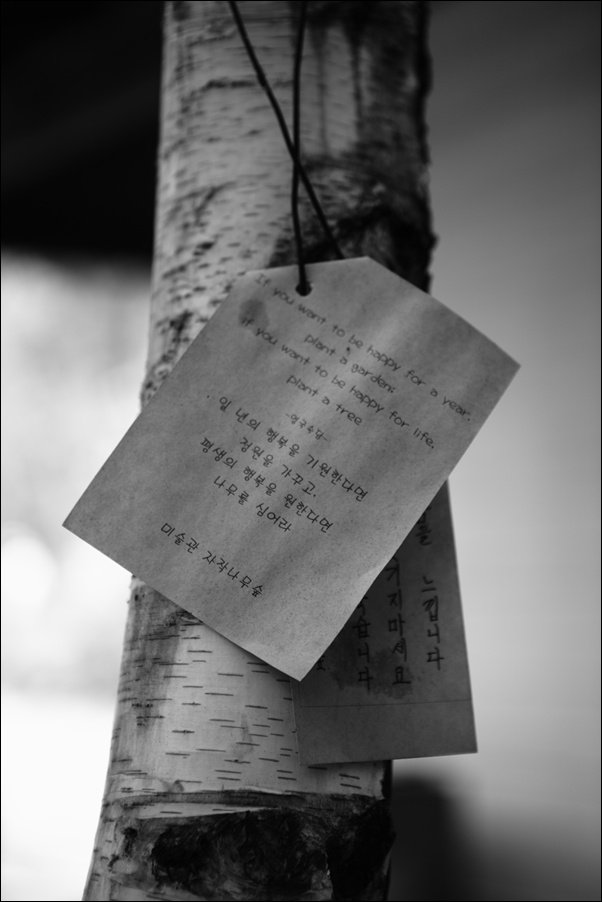 If you want to be happy for a year.
plant a garden;
if you want to be happy for life,
plant a tree
-영국속담-
일 년의 행복을 기원한다면
정원을 가꾸고.
평생의 행복을 원한다면
나무를 심어라
미술관 자작나무숲
느낍니다
지마세요
습니다